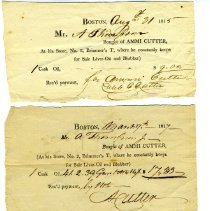 BOSTON, Aug 31 1815
Mr. A Thompson
Bought of AMMI CUTTER,
(At his Store, No. 2, Brimmer's T, where he constantly keeps
for Sale Liver-Oil and Blubber)
1 Cask Oil, $ 9.00
Rec'd payment, for Ammi Cutter
BOSTON,
Mr. A Thompson
Bought of AMMI CUTTER,
(At his Store, No. 2, Brimmer's T, where he constantly keeps
for Sale Liver-Oil and Blubber)
1 Cask Oil,
Rec'd payment,
A Cutter